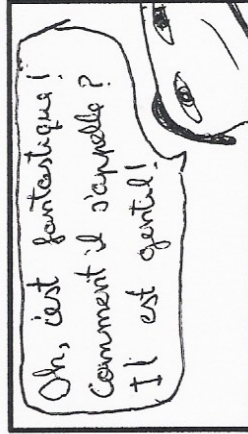 Oh, c'est fantastique!
Comment il s'appelle?
Il est gentil!